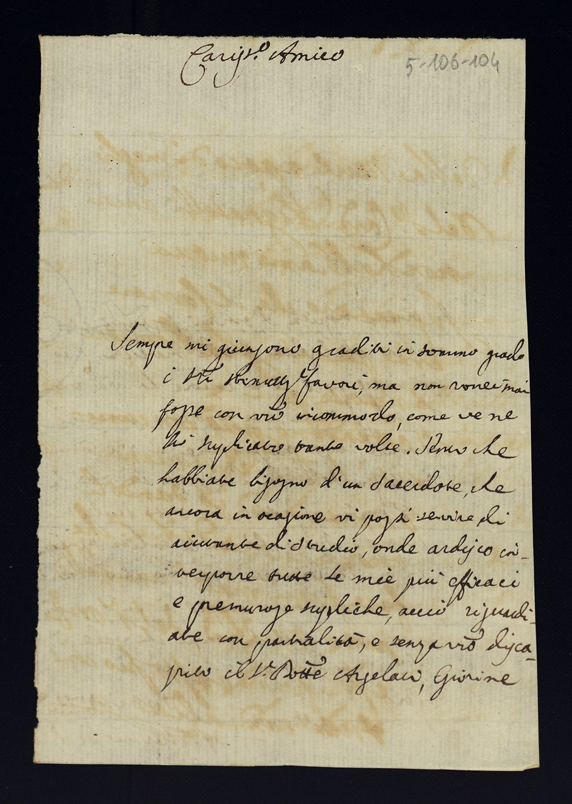 Cariss.o Amico
5-106-104
Sempre mi giungono graditi in sommo grado
i Vri favori, ma non vorrei mai
fosse con vro incommodo, come ve ne
hò supplicato tante volte. Sento che
habbiate bisogno d'un Sacerdote, che
ancora in ocasione vi possi servire di
aiutante di studio, onde ardisco in-
terporre tutte le mie più efficaci
e premurose suppliche, acciò riguardi-
ate con partialità, e senza vro disca-
pito il Sr. Dotte Argelati, Giovine